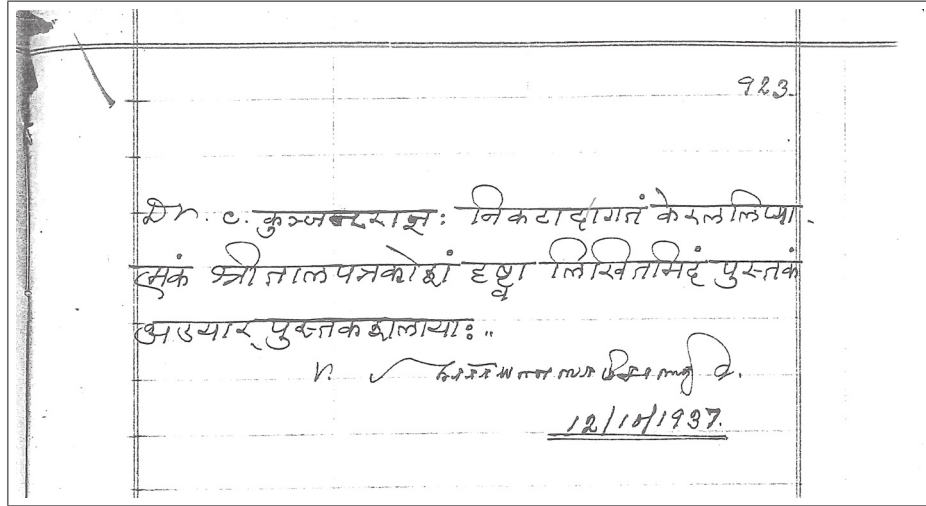 923.
Dr. C. कुञ्जन्राज्ञः निकटादागतं केरललिप्या-
त्मकं श्रीतालपत्रकोशं दृष्ट्वा लिखितमिदं पुस्तकं
अडयार् पुस्तकशालायाः ..
12/10/1937.